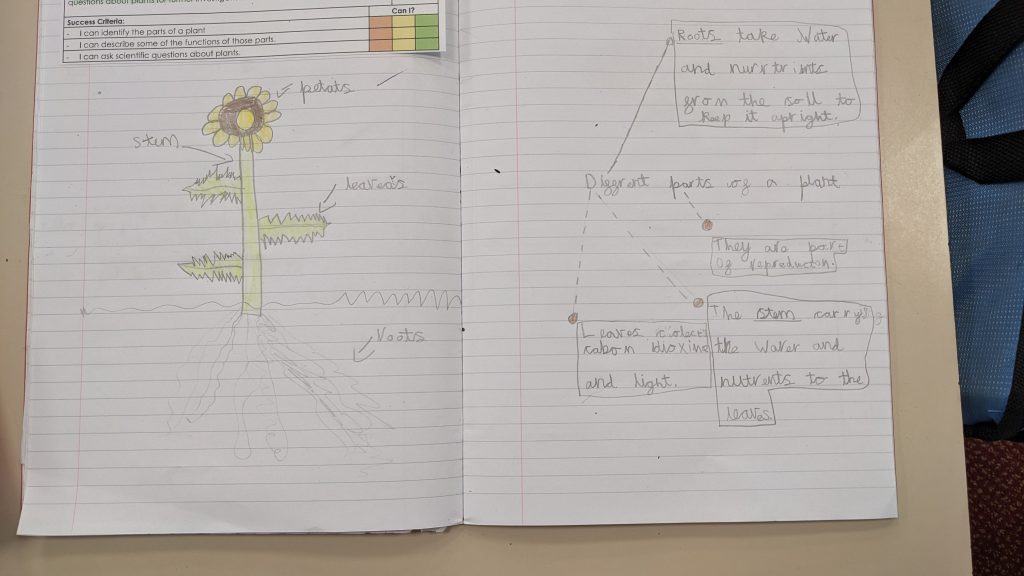 questions about plants for further investig
Success Criteria:
Can I?
- I can identify the parts of a plant
- I can describe some of the functions of those parts.
- I can ask scientific questions about plants.
petals
stem
leaves
roots
Roots take Water
and nurtrints
from the soll to
keep it upright.
Diffrent parts of a plant
They are part
of reproduction.
Leaves colect
cabon dioxine
and light.
The stem carrys
the water and
nutrents to the
leaves